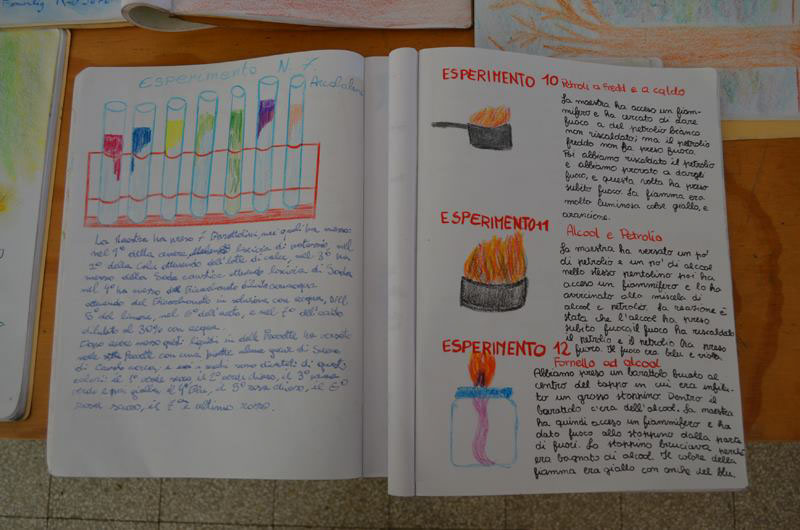 Esperimento N. 7.
Arcobaleno
La maestra ha preso 7 Barattolini nei quali ha messo
nel 1° della cenere, ottenendo lisciva di potassio, nel
2° della Calce ottenendo dell'latte di calce, nel 3° ha
messo della Soda caustica ottenendo lisciva di Soda
nel 4° ha messo del Bicarbonato
ottenendo del Bicarbonato in soluzione con acqua, Nel
5° del limone, nel 6° dell'aceto, e nel 7° dell'acido
diluito al 30% con acqua.
Dopo aver messo questi liquidi in delle Provette ha versato
nelle Provette con una
di Cavolo rosso e
colori: il 1° verde scuro, il 2° verde chiaro, il 3° prima
verde e poi giallo, il 4° Blu, il 5° rosa chiaro, il 6°
rosa scuro, il 7° e ultimo rosso.
ESPERIMENTO 10 Petroli a Freddo e a caldo
La maestra ha acceso un fiam-
mifero e ha cercato di dare
fuoco a del petrolio bianco
non riscaldato; ma il petrolio
freddo non ha preso fuoco.
Poi abbiamo riscaldato il petrolio
e abbiamo provato a dargli
fuoco, e questa volta ha preso
subito fuoco. La fiamma era
molto luminosa color giallo, e
arancione.
ESPERIMENTO 11
Alcool e Petrolio
La maestra ha versato un po'
di petrolio e un po' di alcool
nello stesso pentolino poi ha
acceso un fiammifero e lo ha
avvicinato alla miscela di
alcool e petrolio. La reazione è
stata che l'alcool ha preso
subito fuoco, il fuoco ha riscaldato
il petrolio e il petrolio ha preso
fuoco. Il fuoco era blu e viola.
ESPERIMENTO 12
Fornello ad alcool
Abbiamo preso un barattolo bucato al
centro del tappo in cui era infila-
to un grosso stoppino. Dentro il
barattolo c'era dell'alcool. La maestra
ha quindi acceso un fiammifero e ha
dato fuoco allo stoppino dalla parte
di fuori. Lo stoppino bruciava perché
era bagnato di alcool. Il colore della
fiamma era giallo con anche del blu.